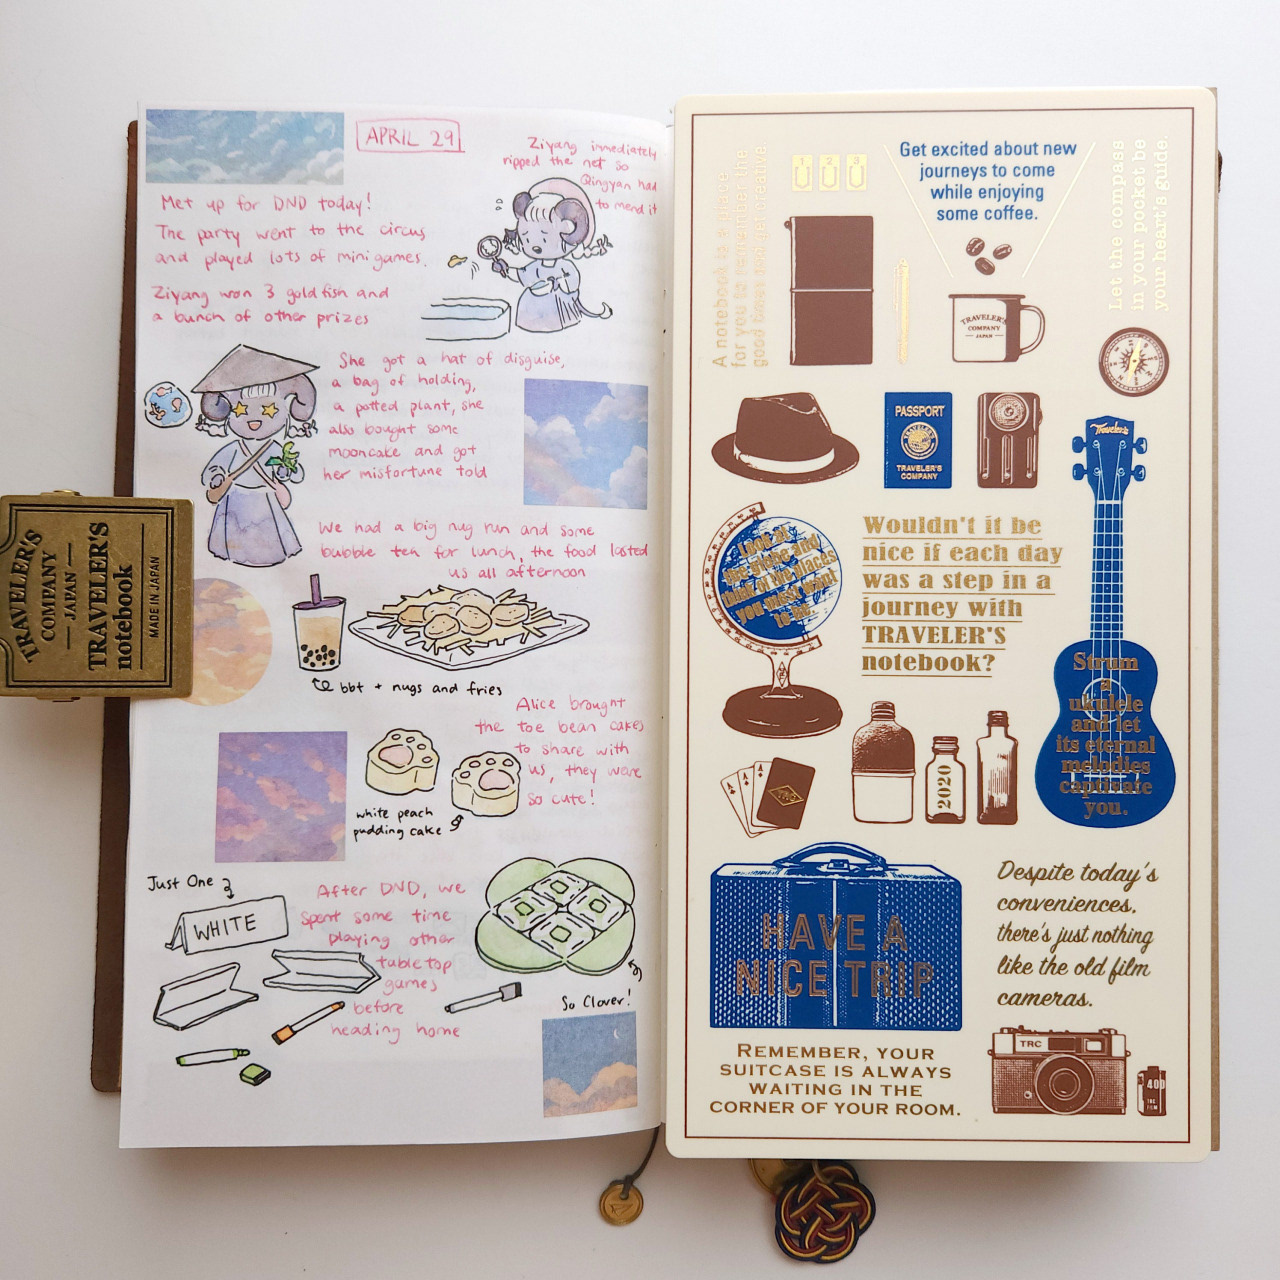 APRIL 29
Ziyang immediately
ripped the net so
Qingyan had
to mend it
Met up for DND today!
The party went to the circus
and played lots of minigames.
Ziyang won 3 goldfish and
a bunch of other prizes
She got a hat of disguise,
a bag of holding,
a potted plant, she
also bought some
mooncake and got
her misfortune told
We had a big nug run and some
bubble tea for lunch, the food lasted
us all afternoon
bbt + nugs and fries
Alice brought
the toe bean cakes
to share with
us, they were
so cute!
white peach
pudding cake
Just One
WHITE
After DND, we
spent some time
playing other
tabletop
games
before
heading home
So Clover!
TRAVELER'S
COMPANY
JAPAN
TRAVELER'S
notebook
MADE IN JAPAN
A notebook is a place
for you to remember the
good times and get creative.
1 2 3
Get excited about new
journeys to come
while enjoying
some coffee.
Let the compass
in your pocket be
your heart's guide.
TRAVELER'S
COMPANY
JAPAN
PASSPORT
TRAVELER'S
COMPANY
Traveler's
Look at
the globe and
think of the places
you might want
to be.
Wouldn't it be
nice if each day
was a step in a
journey with
TRAVELER'S
notebook?
Strum
a
ukulele
and let
its eternal
melodies
captivate
you.
A
A
A
TRC
2020
HAVE A
NICE TRIP
Despite today's
conveniences,
there's just nothing
like the old film
cameras.
REMEMBER, YOUR
SUITCASE IS ALWAYS
WAITING IN THE
CORNER OF YOUR ROOM.
TRC
400
TRC
FILM